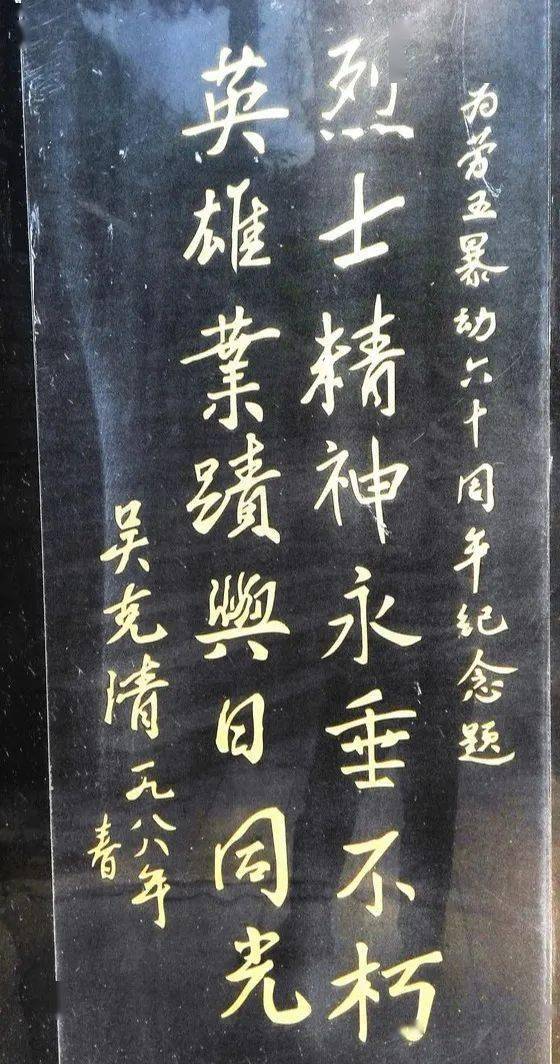 为劳五暴动六十周年纪念题
烈士精神永垂不朽
英雄業蹟與日同光
吴克清一九八八年
春